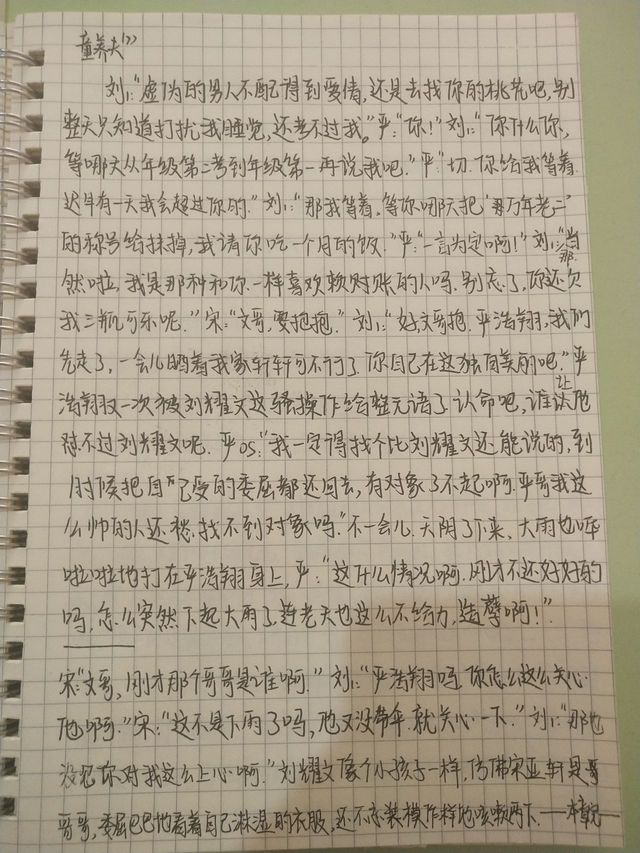 童养夫(7)
刘:“虚伪的男人不配得到爱情,还是去找你的桃花吧,别
整天只知道打扰我睡觉,还考不过我。”严:“你!”刘:“你什么你,
等哪天从年级第二考到年级第一再说我吧.”严:“切.你给我等着.
迟早有一天我会超过你的.”刘:“那我等着,等你哪天把‘万年老二’
的称号给抹掉,我请你吃一个月的饭.”严:“一言为定啊!”刘:“当
然啦,我是那种和你一样喜欢赖账的人吗.别忘了,你还欠
我三瓶可乐呢.”宋:“文哥,要抱抱.”刘:“好,文哥抱.严浩翔,我们
先走了,一会儿晒着我家轩轩可不行了.你自己在这独自美丽吧.”严
浩翔又一次被刘耀文这骚操作给整无语了.认命吧,谁让他
怼不过刘耀文呢.严os:“我一定得找个比刘耀文还能说的,到
时候把自己受的委屈都还回去,有对象了不起啊.严哥我这
么帅的人还愁找不到对象吗.”不一会儿.天阴了下来、大雨也哗
啦啦地打在严浩翔身上,严:“这什么情况啊.刚才不还好好的
吗,怎么突然下起大雨了,连老天也这么不给力,造孽啊!”.
宋:“文哥,刚才那个哥哥是谁啊.”刘:“严浩翔吗.你怎么这么关心
他啊.”宋:“这不是下雨了吗,他又没带伞.就关心一下.”刘:“那也
没见你对我这么上心啊.”刘耀文像个小孩子一样,仿佛宋亚轩是哥
哥,委屈巴巴地看着自己淋湿的衣服,还不忘装模作样地咳嗽两下.——本章完——